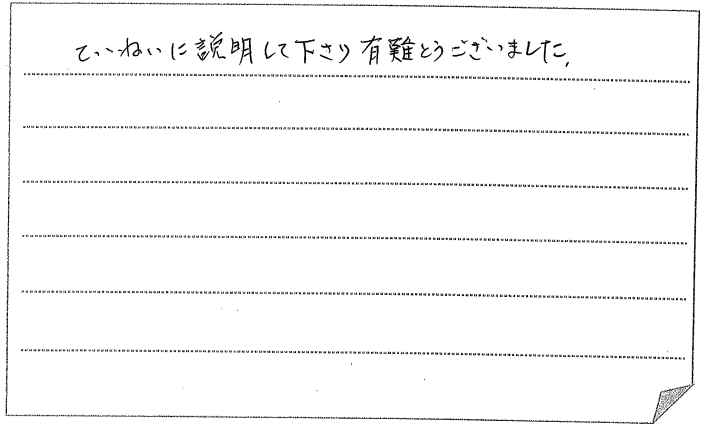 ていねいに説明して下さり有難とうございました。